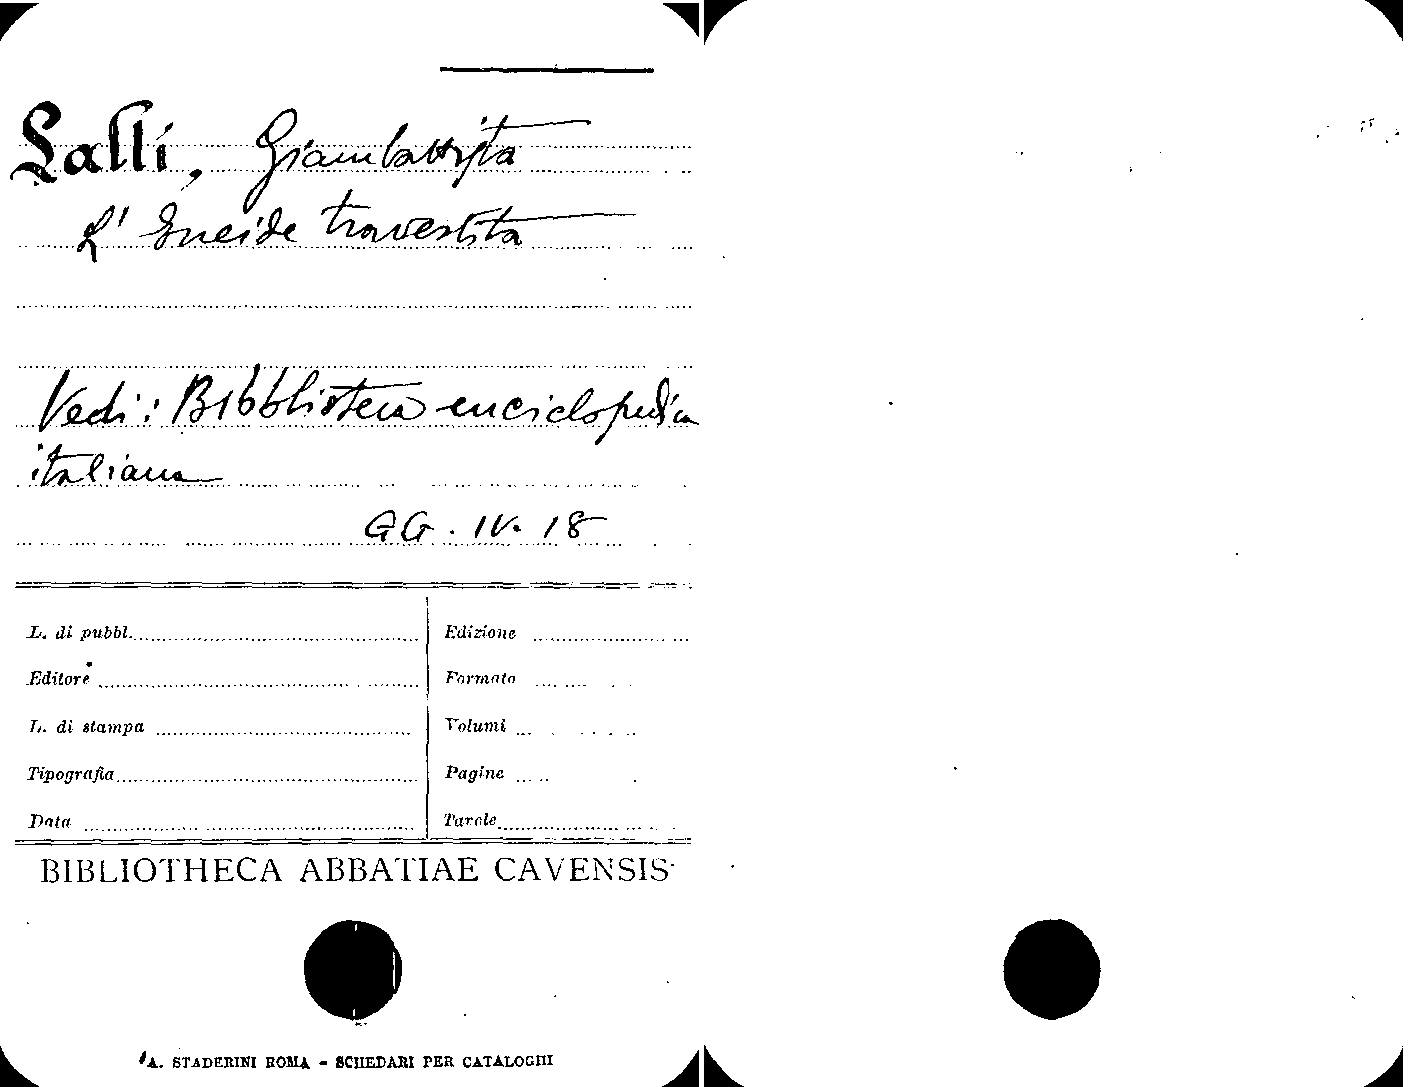 Lalli, Giambattista
L' Eneide travestita
Vedi: Bibblioteca enciclopedica
italiana
GG. IV. 18
L. di pubbl.
Editore
L. di stampa
Tipografia
Data
Edizione
Formato
Volumi
Pagine
Tavole
BIBLIOTHECA ABBATIAE CAVENSIS
A. STADERINI ROMA - SCHEDARI PER CATALOGHI